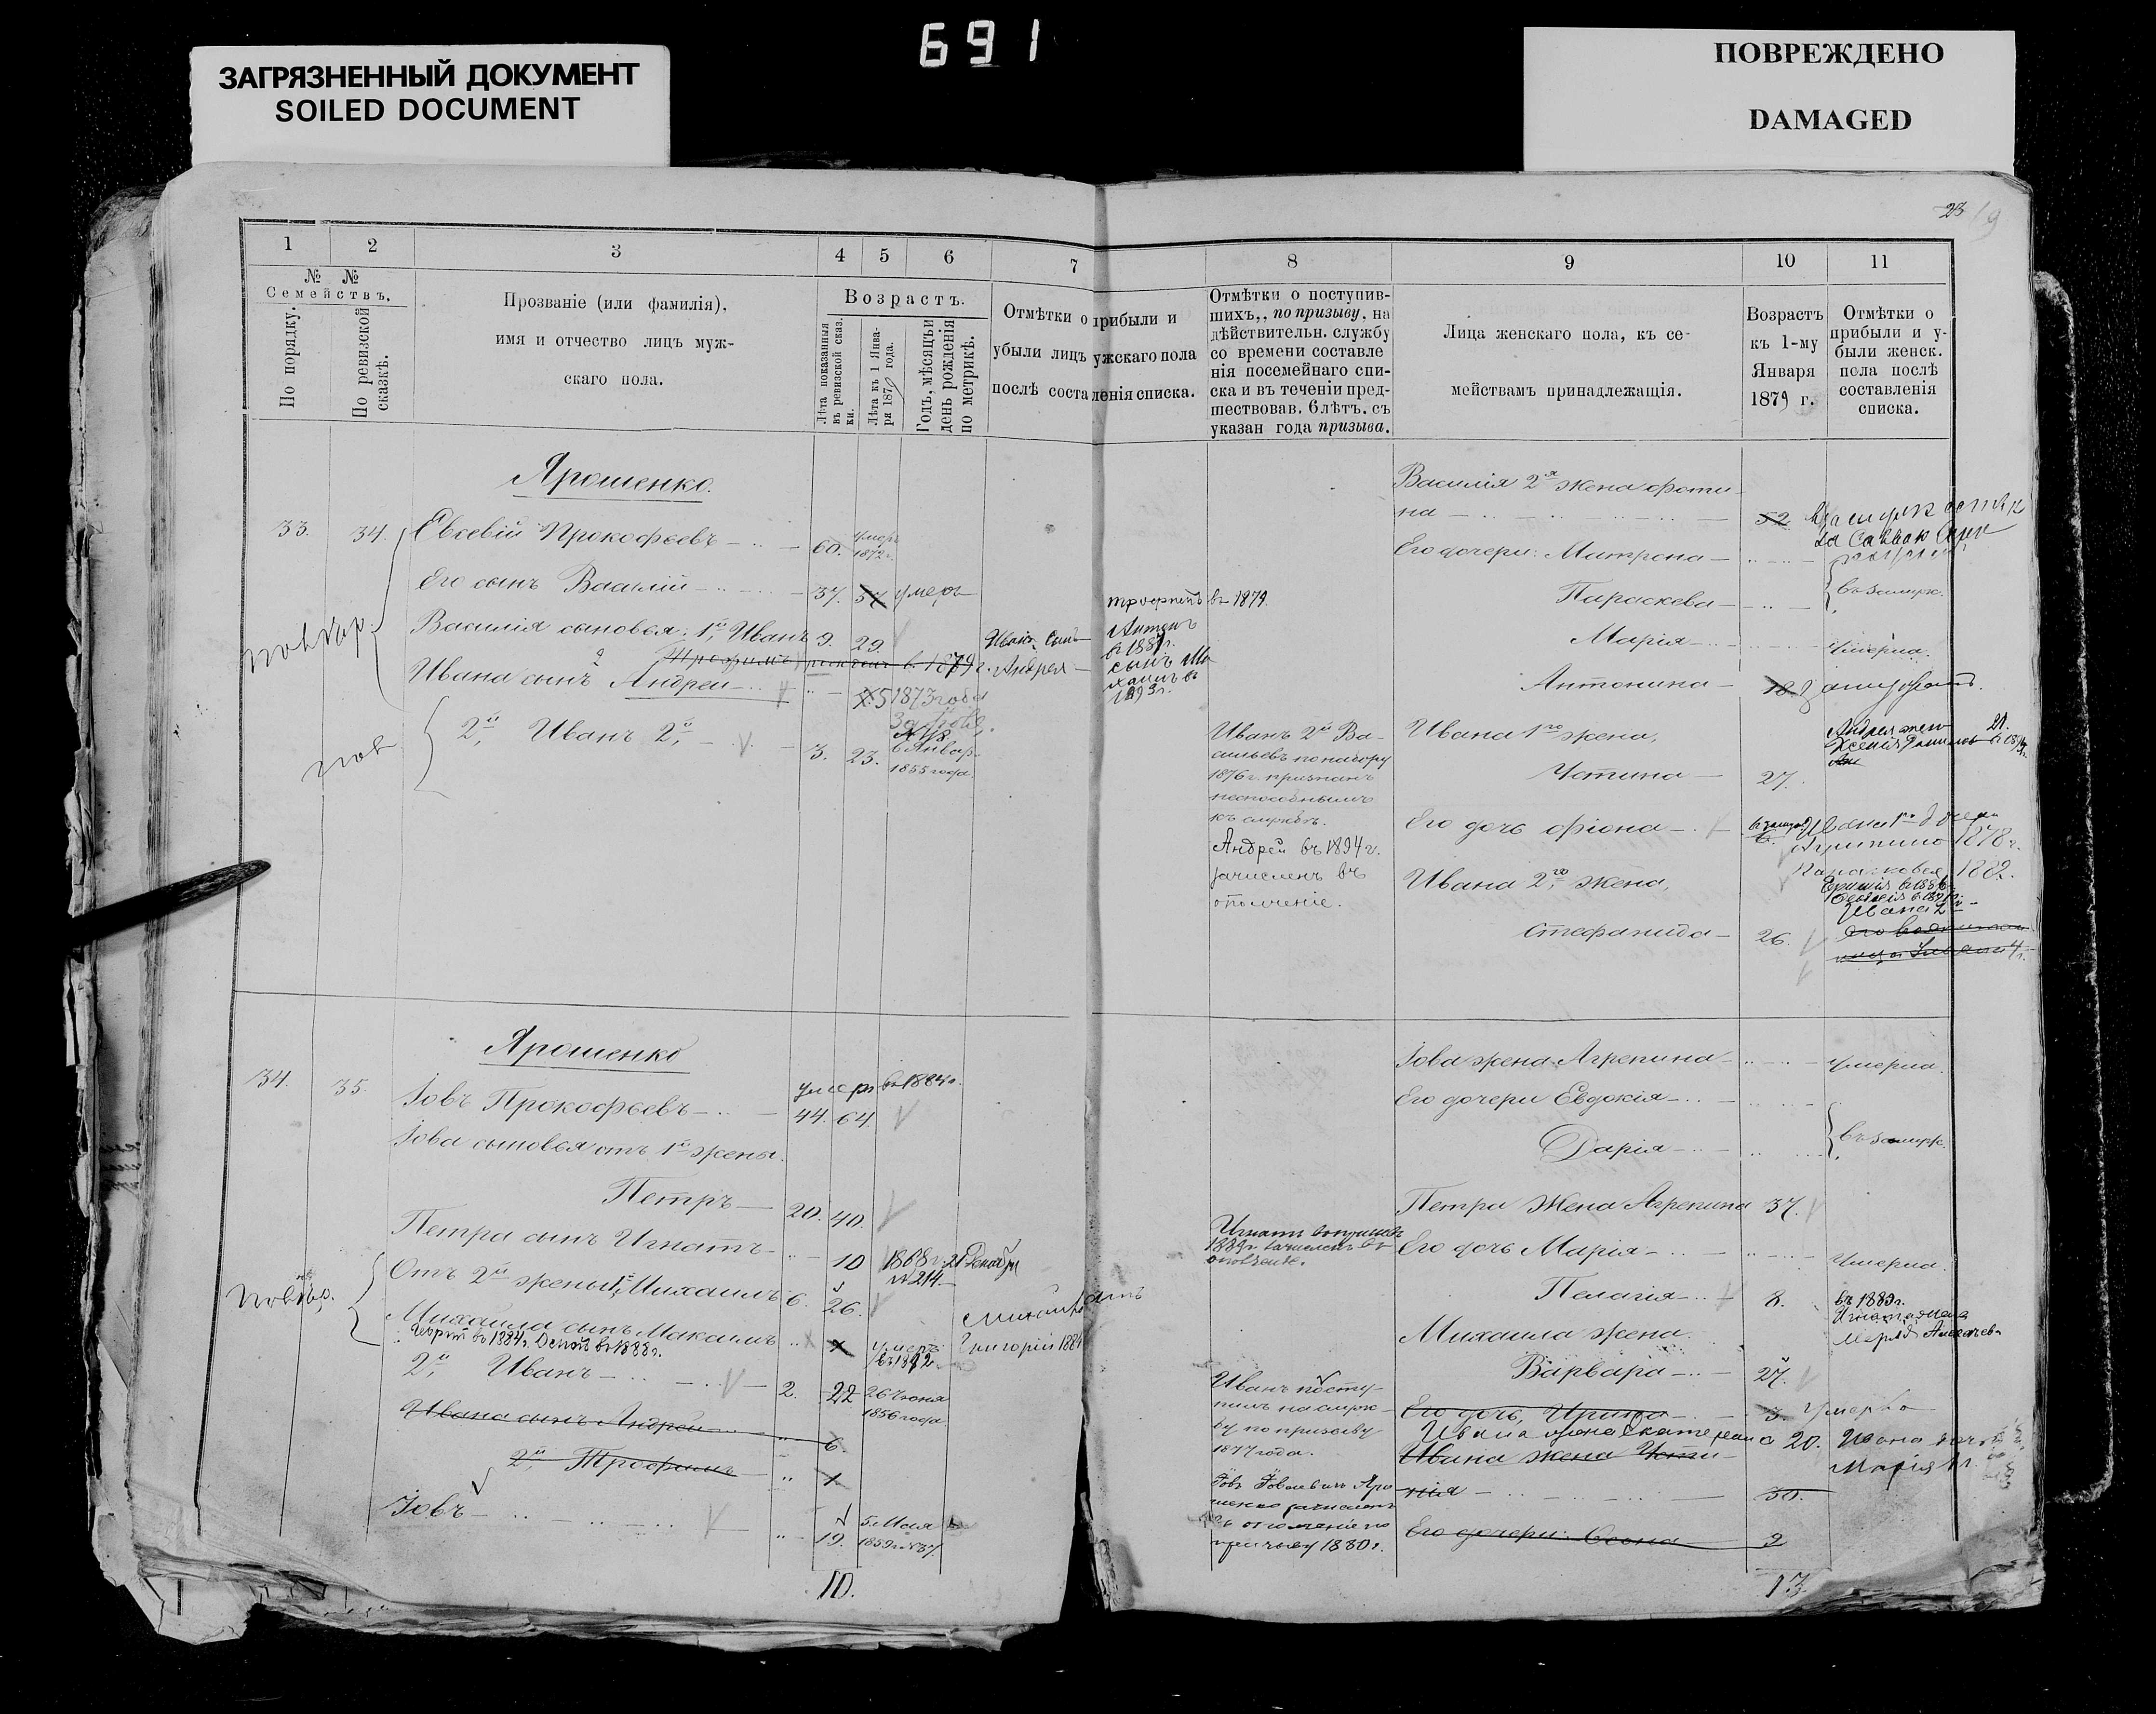 691
ЗАГРЯЗНЕННЫЙ ДОКУМЕНТ
SOILED DOCUMENT
ПОВРЕЖДЕНО
DAMAGED
23 19
1 2 3 4 5 6 7 8 9 10 11
№ №
Семействъ.
По порядку.
По ревизской сказкѣ.
Прозваніе (или фамилія),
имя и отчество лицъ муж-
скаго пола.
Возрастъ.
Лѣта показанныя въ ревизской сказ. ки.
Лѣта къ 1 Янва- ря 1879 года.
Годъ, мѣсяцъ и день рожденія по метрикѣ.
Отмѣтки о прибыли и
убыли лицъ ужскаго пола
послѣ составленія списка.
Отмѣтки о поступив-
шихъ,, по призыву, на
дѣйствительн. службу
со времени составле
нія посемейнаго спи-
ска и въ теченіи пред-
шествовав. 6 лѣтъ. съ
указан года призыва.
Лица женскаго пола, къ се-
мействамъ принадлежащія.
Возрастъ
къ 1-му
Января
1879 г.
Отмѣтки о
прибыли и у-
были женск.
пола послѣ
составленія
списка.
Ярошенко.
33. 34. Евсевій Прокофьевъ 60. умеръ 1872 г.
Его сынъ Василій 37. 57 умеръ
Василія сыновья: 1й, Иванъ 9. 29.
Трофимъ рожден в 1879 г.
Ивана сынъ Андрей 5 1873 года
2й, Иванъ 2й, 3. 23. 6 Январ.
1855 года
Иванъ сынъ
Антонъ
в 1881 г.
Андрея
сынъ
1893 г.
въ 1879.
Иванъ 2й Ва-
сильевъ по набору
1876 г. признанъ
неспособнымъ
къ службѣ.
Андрей въ 1894 г.
зачисленъ въ
ополченіе.
Василія 2я жена Фоти-
на 52
Его дочери: Матрона
Параскева въ замуж.
Марія умерла.
Антонина 18
Ивана 1го жена,
Устина 27.
Его дочь Фіона 6.
Ивана 2го жена,
Стефанида 26.
Андрея жен
Ксенія
Агрипина 1878 г.
Парасковея 1882.
Ивана 2й
Ярошенко
34. 35. умеръ въ 1884 г.
Іовъ Прокофьевъ 44. 64.
Іова сыновья отъ 1й жены.
Петръ 20. 40.
Петра сынъ Игнатъ 10 1868 г. 21 Декабря
№ 214
Отъ 2й жены 1й, Михаилъ 6. 26.
Михаила сынъ Максимъ умеръ
въ 1882 г.
Григорій 1881
2й, Иванъ 2. 22 26 Июня
1856 года
Ивана сынъ Андрей 6.
2й, Трофимъ 1
Іовъ 19. 5. Мая
1859 г. № 37.
10.
Игнатъ
1889 г. зачисленъ въ
ополчение.
Иванъ посту-
пилъ на служ-
бу по призыву
1877 года.
Іовъ Іовлевичъ Яро
шенко зачисленъ
въ ополченіе по
призыву 1880 г.
Іова жена Агрепина умерла.
Его дочери Евдокія
Дарія въ замуж.
Петра Жена Агрепина 37.
Его дочь Марія умерла.
Пелагія 8.
въ 1889 г.
Игната жена
Михаила жена
Варвара 27.
Его дочь, Ирина 3. умерла
Ивана жена Екатерина 20.
Ивана дочь
Марія 1 г.
Ивана жена Усти-
нія 30.
Его дочери: Феона 2
13.